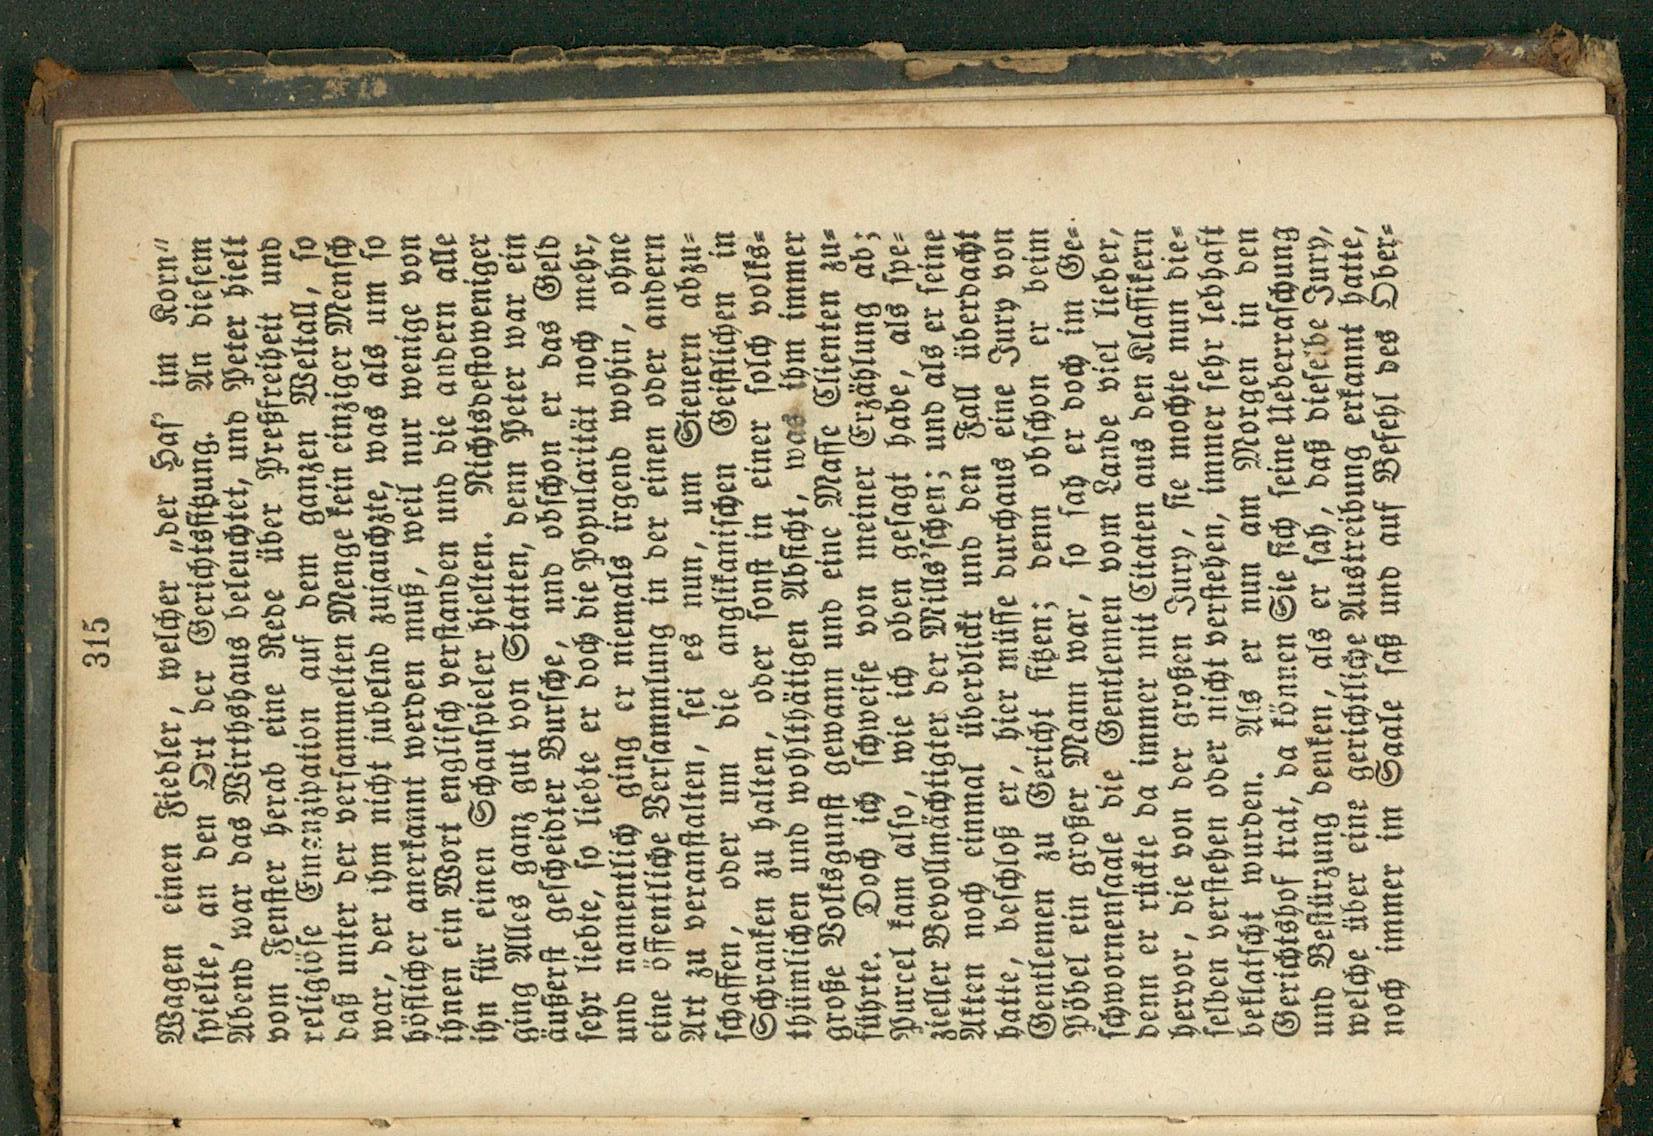 315
Wagen einen Fiedler, welcher „der Has' im Korn"
spielte, an den Ort der Gerichtssitzung. An diesem
Abend war das Wirthshaus beleuchtet, und Peter hielt
vom Fenster herab eine Rede über Preßfreiheit und
religiöse Emanzipation auf dem ganzen Weltall, so
daß unter der versammelten Menge kein einziger Mensch
war, der ihm nicht jubelnd zujauchzte, was als um so
höflicher anerkannt werden muß, weil nur wenige von
ihnen ein Wort englisch verstanden und die andern alle
ihn für einen Schauspieler hielten. Nichtsdestoweniger
ging Alles ganz gut von Statten, denn Peter war ein
äußerst gescheidter Bursche, und obschon er das Geld
sehr liebte, so liebte er doch die Popularität noch mehr,
und namentlich ging er niemals irgend wohin, ohne
eine öffentliche Versammlung in der einen oder andern
Art zu veranstalten, sei es nun, um Steuern abzu-
schaffen, oder um die anglikanischen Geistlichen in
Schranken zu halten, oder sonst in einer solch volks-
thümlichen und wohlthätigen Absicht, was ihm immer
große Volksgunst gewann und eine Masse Clienten zu-
führte. Doch ich schweife von meiner Erzählung ab;
Purcel kam also, wie ich oben gesagt habe, als spe-
zieller Bevollmächtigter der Mills'schen; und als er seine
Akten noch einmal überblickt und den Fall überdacht
hatte, beschloß er, hier müsse durchaus eine Jury von
Gentlemen zu Gericht sitzen; denn obschon er beim
Pöbel ein großer Mann war, so sah er doch im Ge-
schwornensaale die Gentlemen vom Lande viel lieber,
denn er rückte da immer mit Citaten aus den Klassikern
hervor, die von der großen Jury, sie mochte nun die-
selben verstehen oder nicht verstehen, immer sehr lebhaft
beklatscht wurden. Als er nun am Morgen in den
Gerichtshof trat, da können Sie sich seine Ueberraschung
und Bestürzung denken, als er sah, daß dieselbe Jury,
welche über eine gerichtliche Austreibung erkannt hatte,
noch immer im Saale saß und auf Befehl des Ober-